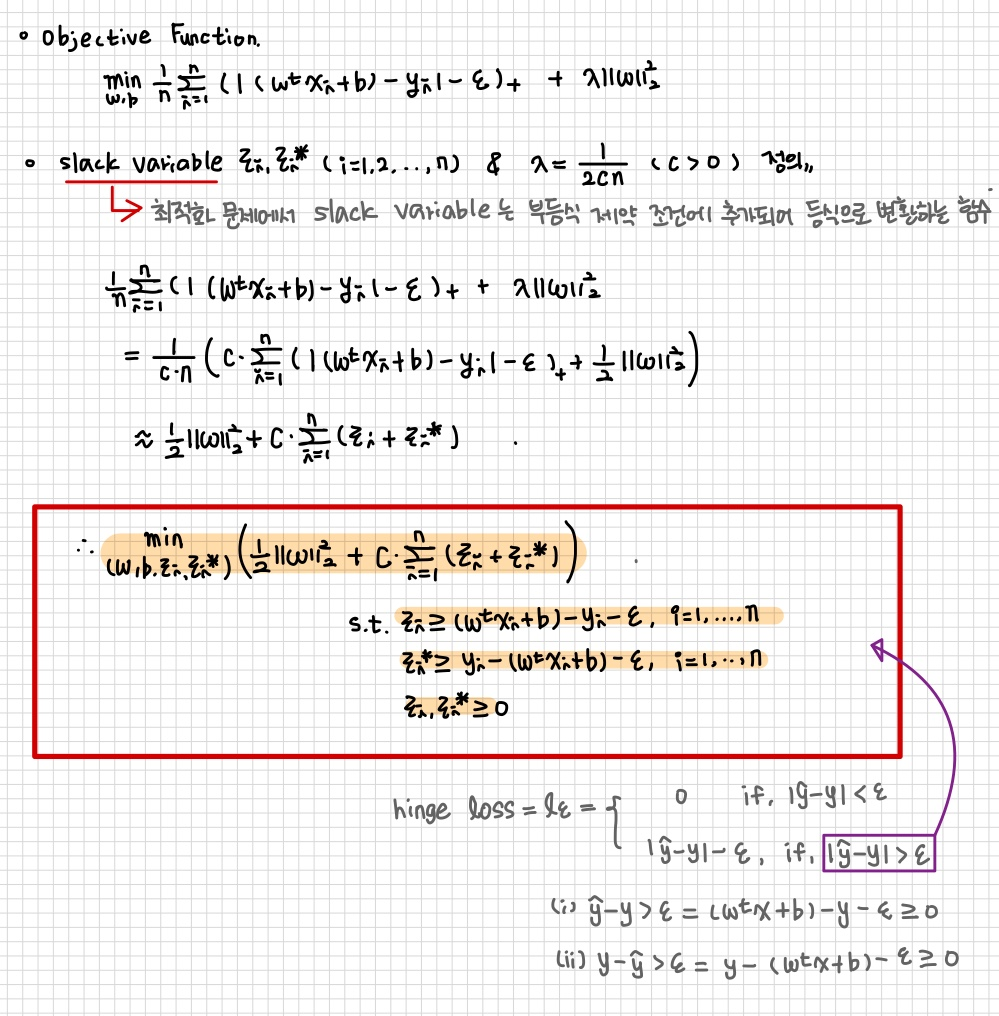 • Objective Function.
min w,b 1/n Σ_{i=1}^{n} (|(wᵗxᵢ+b)-yᵢ|-ε)₊ + λ||ω||₂²
• slack variable ξᵢ, ξᵢ* (i=1,2,...,n) & λ = 1/2cn (c>0) 정의,,
↳ 최적화 문제에서 slack variable는 부등식 제약 조건에 추가되어 등식으로 변환하는 함수
1/n Σ_{i=1}^{n} (|(wᵗxᵢ+b)-yᵢ|-ε)₊ + λ||ω||₂²
= 1/c·n (C·Σ_{i=1}^{n} (|(wᵗxᵢ+b)-yᵢ|-ε)₊ + 1/2 ||ω||₂²)
≈ 1/2 ||ω||₂² + C·Σ_{i=1}^{n} (ξᵢ + ξᵢ*)
∴ min (w,b,ξᵢ,ξᵢ*) (1/2 ||ω||₂² + C·Σ_{i=1}^{n} (ξᵢ + ξᵢ*))
s.t. ξᵢ ≥ (wᵗxᵢ+b)-yᵢ-ε, i=1,....,n
ξᵢ* ≥ yᵢ-(wᵗxᵢ+b)-ε, i=1,..,n
ξᵢ, ξᵢ* ≥ 0
hinge loss = lε = { 0 if, |ŷ-y|<ε
|ŷ-y|-ε, if, |ŷ-y|>ε
(i) ŷ-y>ε = (wᵗx+b)-y-ε≥0
(ii) y-ŷ>ε = y-(wᵗx+b)-ε≥0